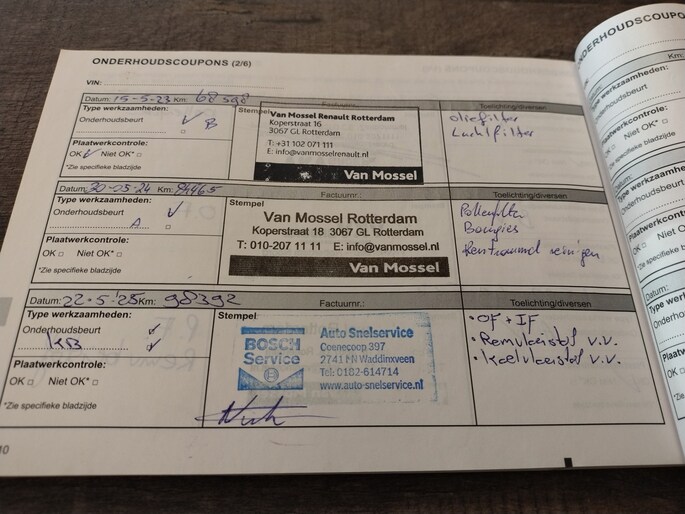 ONDERHOUDSCOUPONS (2/6)
VIN:
Datum: 15-5-23 Km: 68398
Factuurnr.:
Toelichting/diversen
Type werkzaamheden:
Onderhoudsbeurt
B
Plaatwerkcontrole:
OK Niet OK*
*Zie specifieke bladzijde
Stempel
Van Mossel Renault Rotterdam
Koperstraat 16
3067 GL Rotterdam
T: +31 102 071 111
E: info@vanmosselrenault.nl
Van Mossel
oliefilter
Luchtfilter
Datum: 20-05-24 Km: 84465
Factuurnr.:
Toelichting/diversen
Type werkzaamheden:
Onderhoudsbeurt
A
Plaatwerkcontrole:
OK Niet OK*
*Zie specifieke bladzijde
Stempel
Van Mossel Rotterdam
Koperstraat 18 3067 GL Rotterdam
T: 010-207 11 11 E: info@vanmossel.nl
Van Mossel
Pollenfilter
Bougies
Remtrommel reinigen
Datum: 22-5-'25 Km: 98392
Factuurnr.:
Toelichting/diversen
Type werkzaamheden:
Onderhoudsbeurt
KB
Plaatwerkcontrole:
OK Niet OK*
*Zie specifieke bladzijde
Stempel
BOSCH
Service
Auto Snelservice
Coenecoop 397
2741 PN Waddinxveen
Tel: 0182-614714
www.auto-snelservice.nl
• OF + IF
• Remvloeistof v.v.
• Koelvloeistof v.v.
10
ONDERHOUDSCOUPO
Km:
Datum:
Type werkzaamheden:
Onderhoudsbeurt
Plaatwerkcontrole:
OK Niet OK*
*Zie specifieke bladzijde
Datum:
Type werkzaamheden:
Onderhoudsbeurt
Plaatwerkcontrole:
OK Niet OK*
*Zie specifieke bladzijde
Datum:
Type werkzaamheden:
Onderhoudsbeurt
Plaatwerkcontrole:
OK Niet OK*